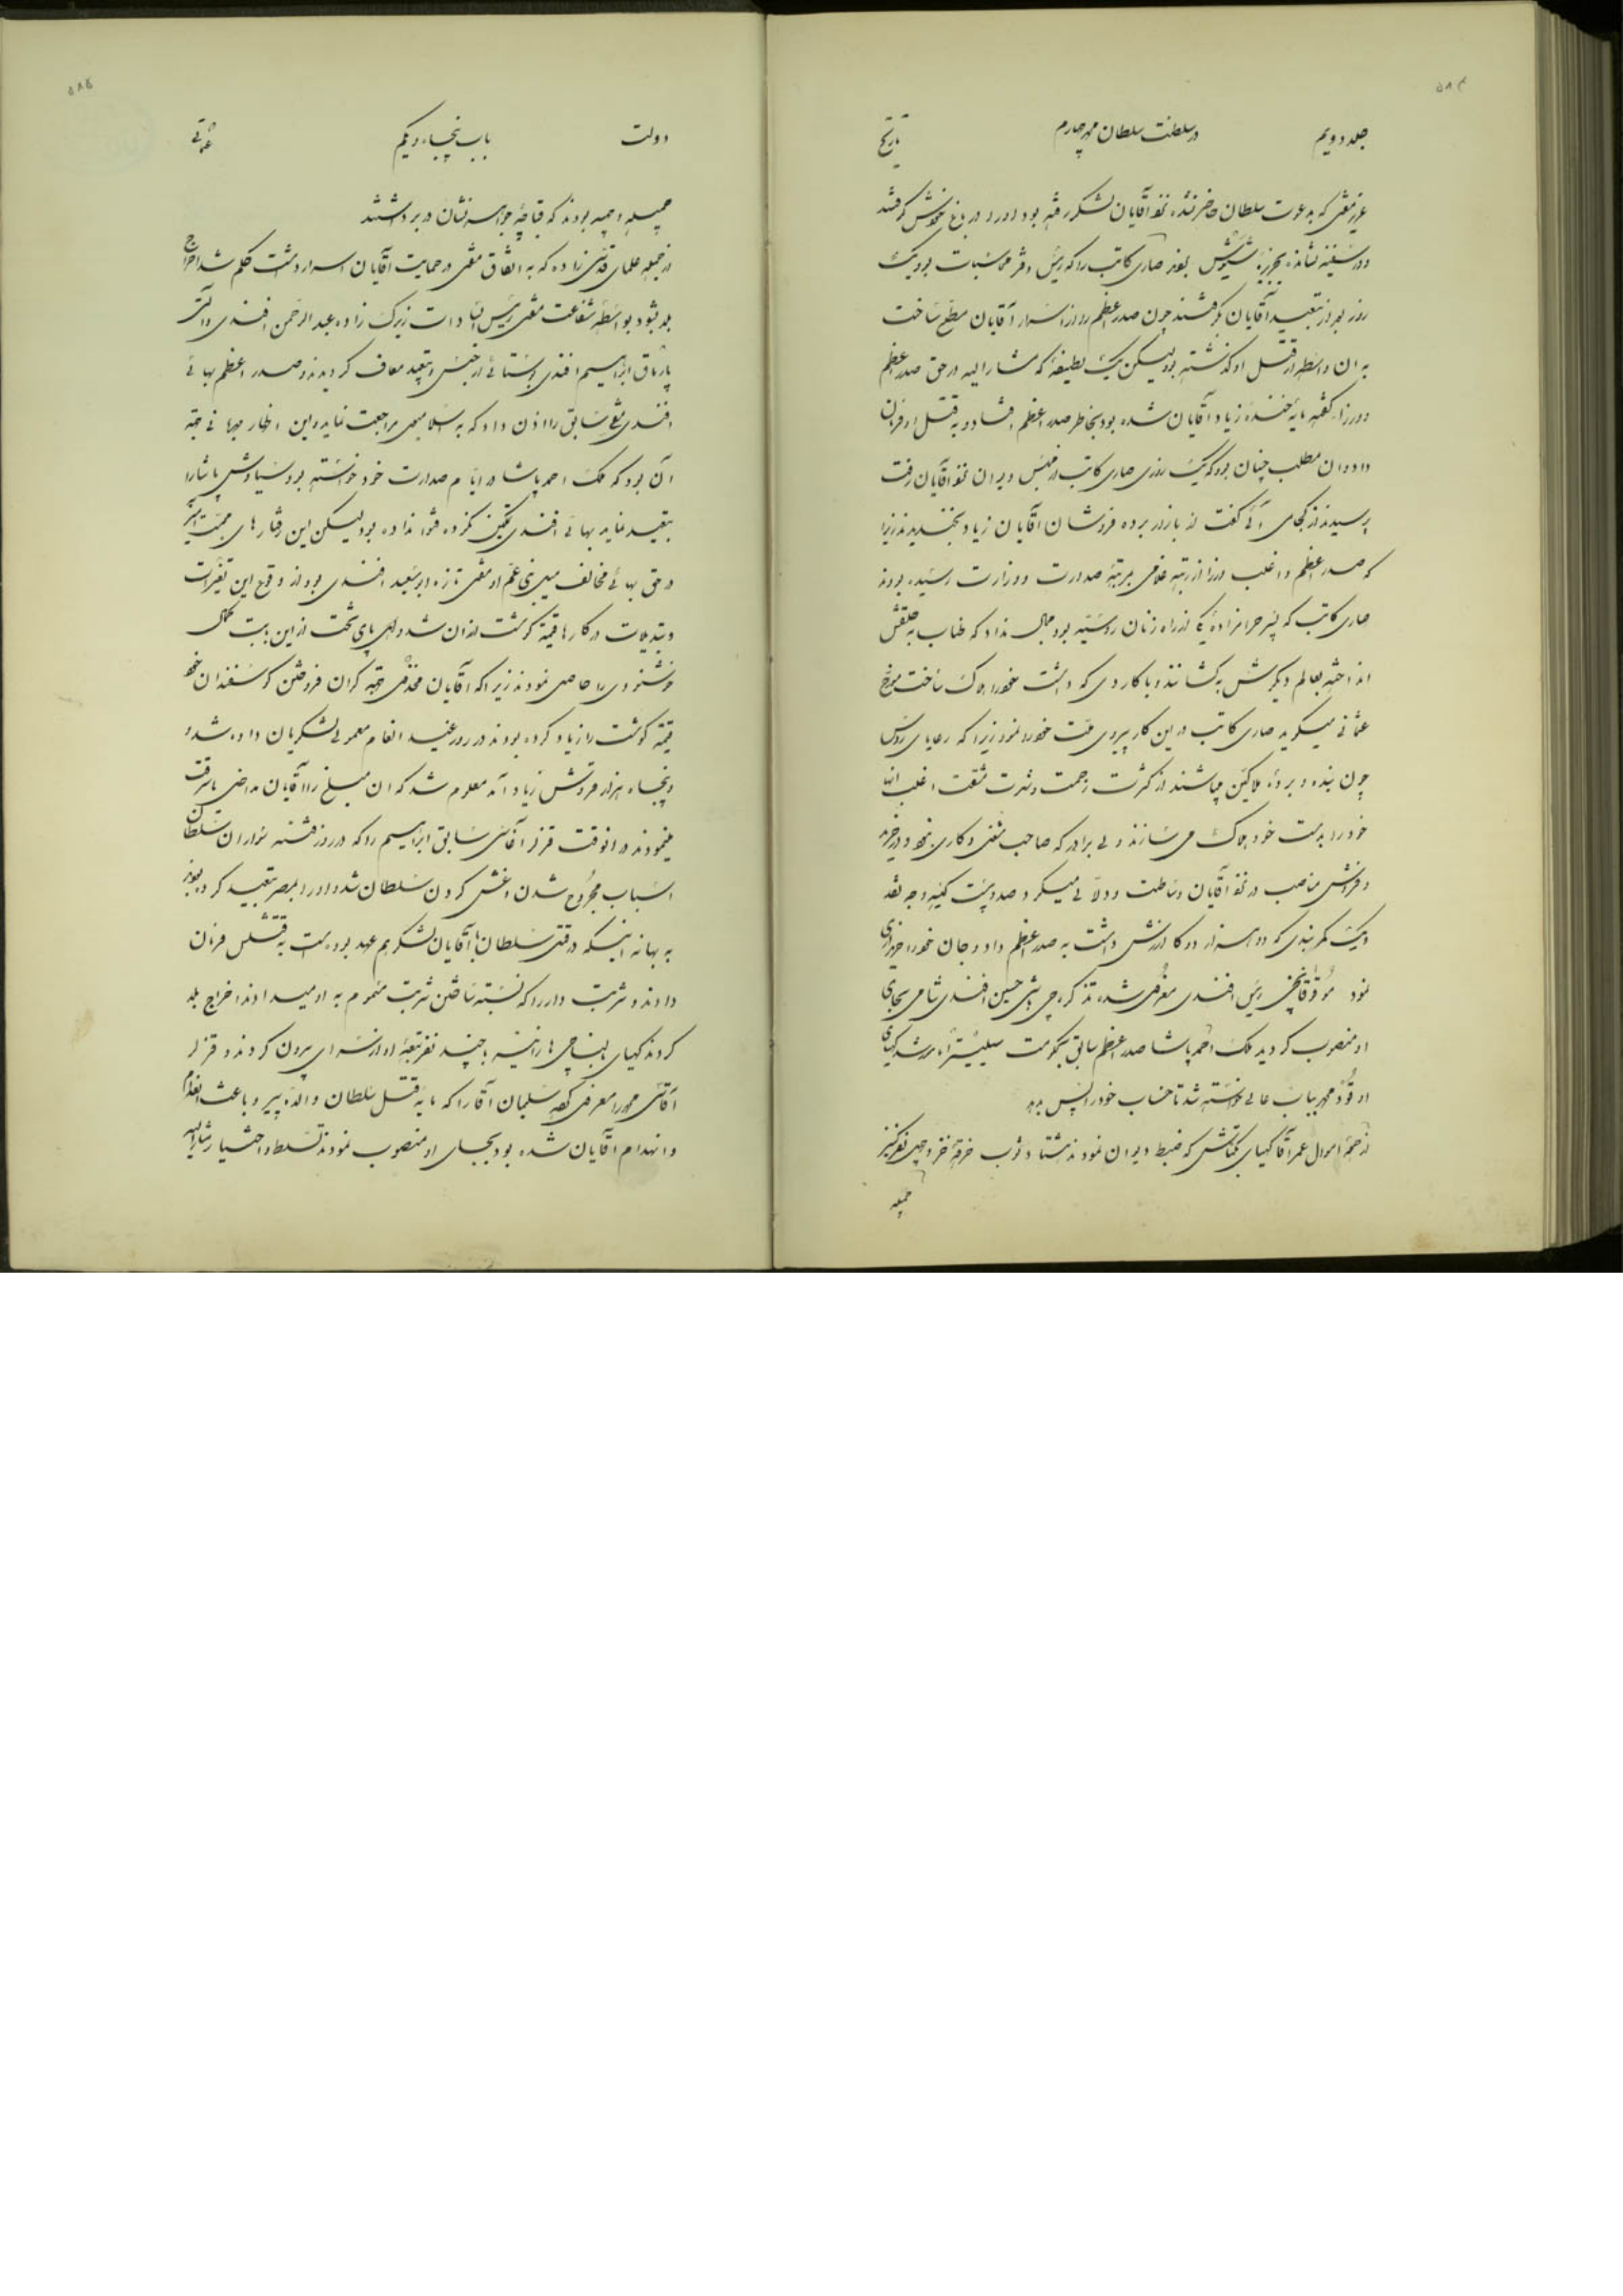 ۵۸۴
جلد دویم در سلطنت سلطان محمد چهارم تاریخ
عزیز مفتی که بدعوت سلطان حاضر نشده نزد آقایان لشکر رفته بود او را در باغ خودش گرفتند
و در سفینه نشانده بجزیره نمودند صاری کاتب را که رئیس دفتر محاسبات بود یک
روز بعد از تبعید آقایان گرفتند چون صدر اعظم را از اسرار آقایان مطلع ساخت
به آن واسطه از قتل او گذشته بود لیکن یک لطیفهٔ که مشار الیه در حق صدر اعظم
و وزرا گفته مایهٔ خندهٔ زیاد آقایان شده بود بخاطر صدر اعظم افتاد و به قتل او فرمان
داد و آن مطلب چنان بود که یک روزی صاری کاتب از مجلس دیوان نزد آقایان رفت
پرسیدند از کجا می آئی گفت از بازار برده فروشان آقایان زیاد بخندیدند زیرا
که صدر اعظم و اغلب وزرا از رتبهٔ غلامی بمرتبهٔ صدارت و وزارت رسیده بودند
صاری کاتب که پسر حرامزادهٔ یکی از زنان روسیه بود مجال نداد که طناب به حلقش
انداخته بعالم دیگرش بکشانند و با کاردی که داشت خود را هلاک ساخت مورخ
عثمانی میگوید صاری کاتب در این کار پیروی ملت خود را نمود زیرا که رعایای روس
چون بنده و بردهٔ مالکین میباشند از کثرت زحمت و شدت مشقت اغلب آنها
خود را بدست خود هلاک می سازند ولی برادر که صاحب شغل و کاری نبود و در خرید
و فروش مناصب در نزد آقایان وساطت و دلالی میکرد صد و بیست کیسه وجه نقد
و یک کمربندی که دو هزار دوکا ارزش داشت به صدر اعظم داد و جان خود را خریداری
نمود رئیس افندی معزول شده تذکره چی باشی حسین افندی شامی بجای
او منصوب گردید ملک احمد پاشا صدر اعظم سابق بحکومت سیلیستریا مأمور شد کهیای
او محمد بباب عالی خواسته شد تا حساب خود را پس بدهد
از جملهٔ اموال عمر آقا کهیای بکتاش که ضبط دیوان نمودند هشتاد ثوب خرقهٔ خز و چهل نفر کنیز
جمیله
۵۸۵
دولت باب پنجاه و یکم عثمانی
جمیله وجیهه بودند که قباچهٔ جواهر نشان در بر داشتند
از جمله علمای قدسی زاده که به اتفاق مفتی در حمایت آقایان اسرار داشت حکم شد اخراج
بلد بشود بواسطهٔ شفاعت مفتی رئیس السادات زیرک زاده عبد الرحمن افندی و آلتی
پارماق ابراهیم افندی بوستانی از حبس و تبعید معاف گردیدند و صدر اعظم بهائی
افندی مفتی سابق را اذن داد که به اسلامبول مراجعت نماید و این اظهار مهربانی جهة
آن بود که ملک احمد پاشا در ایام صدارت خود خواسته بود سیاوش پاشا را
تبعید نماید بهائی افندی تمکین نکرده فتوا نداده بود لیکن این رفتارهای محبت آمیز
در حق بهائی مخالف میل بنی عم او مفتی تازه ابو سعید افندی بود از وقوع این تغییرات
و تبدیلات در کارها قیمة گوشت ارزان شد و اهل پای تخت از این بابت کمال
خوشنودی را حاصل نمودند زیرا که آقایان مخذول جهة گران فروختن گوسفندان خود
قیمة گوشت را زیاد کرده بودند در روز عید انعام معمولی لشکریان داده شد و
پنجاه هزار غروش زیاد آمد معلوم شد که آن مبلغ را آقایان ماضی سرقت
مینمودند در آنوقت قزلر آقاسی سابق ابراهیم را که در روز فتنه سواران سلطان
اسباب مجروح شدن و غش کردن سلطان شد و او را بمصر تبعید کرده بودند
به بهانه اینکه در وقتی سلطان با آقایان لشکر هم عهد بوده است به قتلش فرمان
دادند و شربت دار را که نسبت ساختن شربت مسموم به او میدادند اخراج بلد
کردند کهیای بلتاچی ها را نیز به چند نفر تبعهٔ او از سرای بیرون کردند و قزلر
آقاسی محمد را معزول کرده سلیمان آقا را که مایه قتل سلطان والدهٔ پیر و باعث اعدام
و انهدام آقایان شده بود بجای او منصوب نمودند تسلط و اختیار مشار الیه